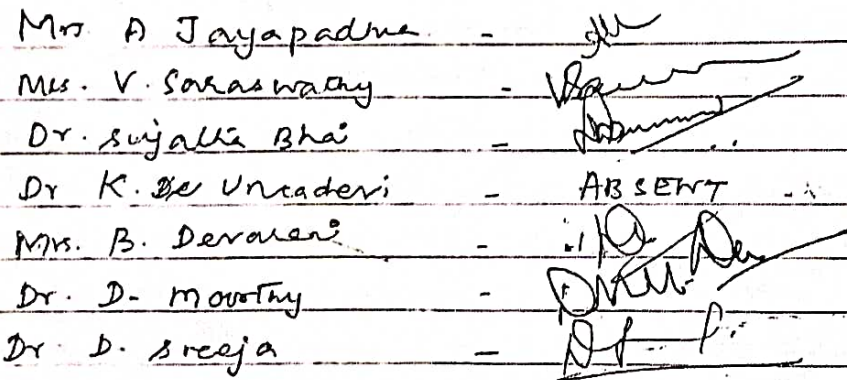 Mrs A Jayapadma -
Mrs. V. Saraswathy -
Dr. Sujatha Bhai -
Dr K. Umadevi - ABSENT
Mrs. B. Devaseni -
Dr. D. Moorthy -
Dr. D. Sreeja -